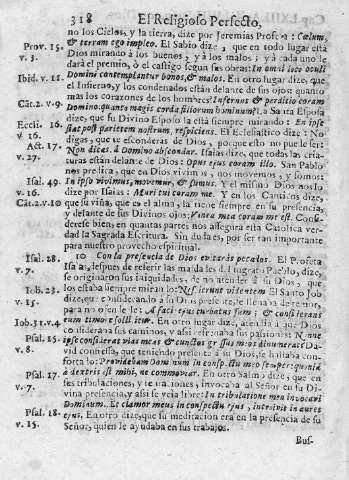 318 El Religioso Perfecto,
no los Cielos, y la tierra, dize por Jeremias Profeta: Cœlum,
& terram ego impleo. El Sabio dize, que en todo lugar está
Prov. 15. v. 3.
Dios mirando á los buenos, y á los malos; y á cada uno le
dará el premio, ó el castigo segun sus obras: In omni loco oculi
Ibid. v. 11.
Domini contemplantur bonos, & malos. En otro lugar dize, que
el Infierno, y los condenados están delante de sus ojos: quanto
mas los corazones de los hombres? Infernus & perditio coram
Cāt. 2. v. 9.
Domino: quanto magis corda filiorum hominum? La Santa Esposa
dize, que su Divino Esposo la está siempre mirando: En ipse
Eccli. 16. v. 16.
stat post parietem nostrum, respiciens. El Eclesiastico dize: No
digas, que te esconderas de Dios, porque esto no puede ser:
Act. 17. v. 27.
Non dicas: A Domino abscondar. Isaias dize, que todas las cria-
turas están delante de Dios: Opus ejus coram illo. San Pablo
nos predica, que en Dios vivimos, nos movemos, y somos:
Isai. 49. v. 16.
In ipso vivimus, movemur, & sumus. Y el mismo Dios nos lo
dize por Isaias: Muri tui coram me. Y en los Canticos dize,
Cāt. 2. v. 10
que su viña, que es el alma, la tiene siempre en su presencia,
y delante de sus Divinos ojos: Vinea mea coram me est. Consi-
derese bien, en quantas partes nos assegura esta Catolica ver-
dad la Sagrada Escritura. Sin duda es, por ser tan importante
para nuestro provecho espiritual.
Isai. 28. v. 7.
10 Con la presencia de Dios evitarás pecados. El Profeta
Isaias, despues de referir las maldades del ingrato Pueblo, dize,
se originaron sus iniquidades, de no atender á su Dios, que
Iob. 23. v. 15.
los estaba siempre mirando: Nescierunt videntem El Santo Job
dize, que considerando á su Dios presente, se llenaba de temor,
para no ofenderle: A facie ejus turbatus sum; & considerans
Iob. 31. v. 4
eum timore sollicitor. En otro lugar dize, atendia á que Dios
consideraba sus caminos, y assi refrenaba sus passiones: Nonne
Psal. 15. v. 8.
ipse considerat vias meas & cunctos gressus meos dinumerat? Da-
vid confiessa, que teniendo presente á su Dios, se hallaba con-
fortado: Providebam Dominum in conspectu meo semper: quoniã
Psal. 17. v. 7.
á dextris est mihi, ne commovear. En otro Salmo dize, que en
sus tribulaciones, y tentaciones, invocaba al Señor en su Di-
vina presencia, y assi se veia libre: In tribulatione mea invocavi
Dominum.. Et clamor meus in conspectu ejus, introivit in aures
Psal. 18. v. 15.
ejus. En otro dize, que su meditacion era en la presencia de su
Señor, quien le ayudaba en sus trabajos.
Bus-